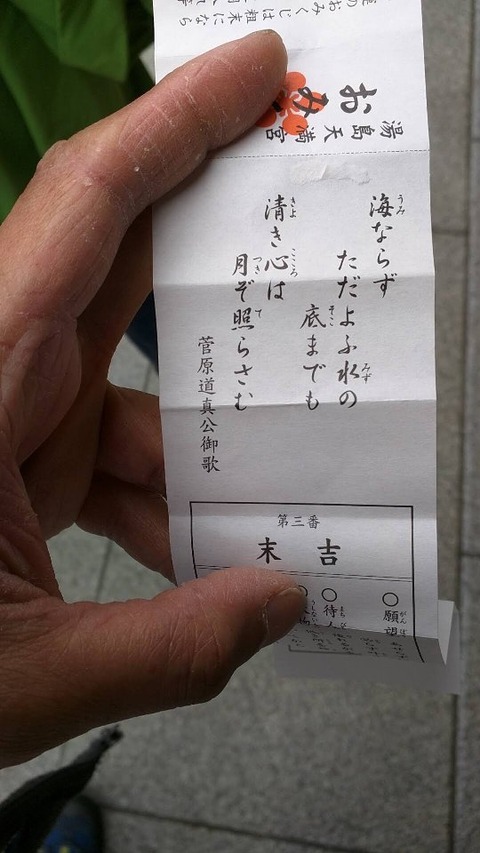 のおみくじは粗末になら
おみ
湯島天満宮
海ならず
ただよふ水の
底までも
清き心は
月ぞ照らさむ
菅原道真公御歌
第三番
末吉
○願望
○待人
○